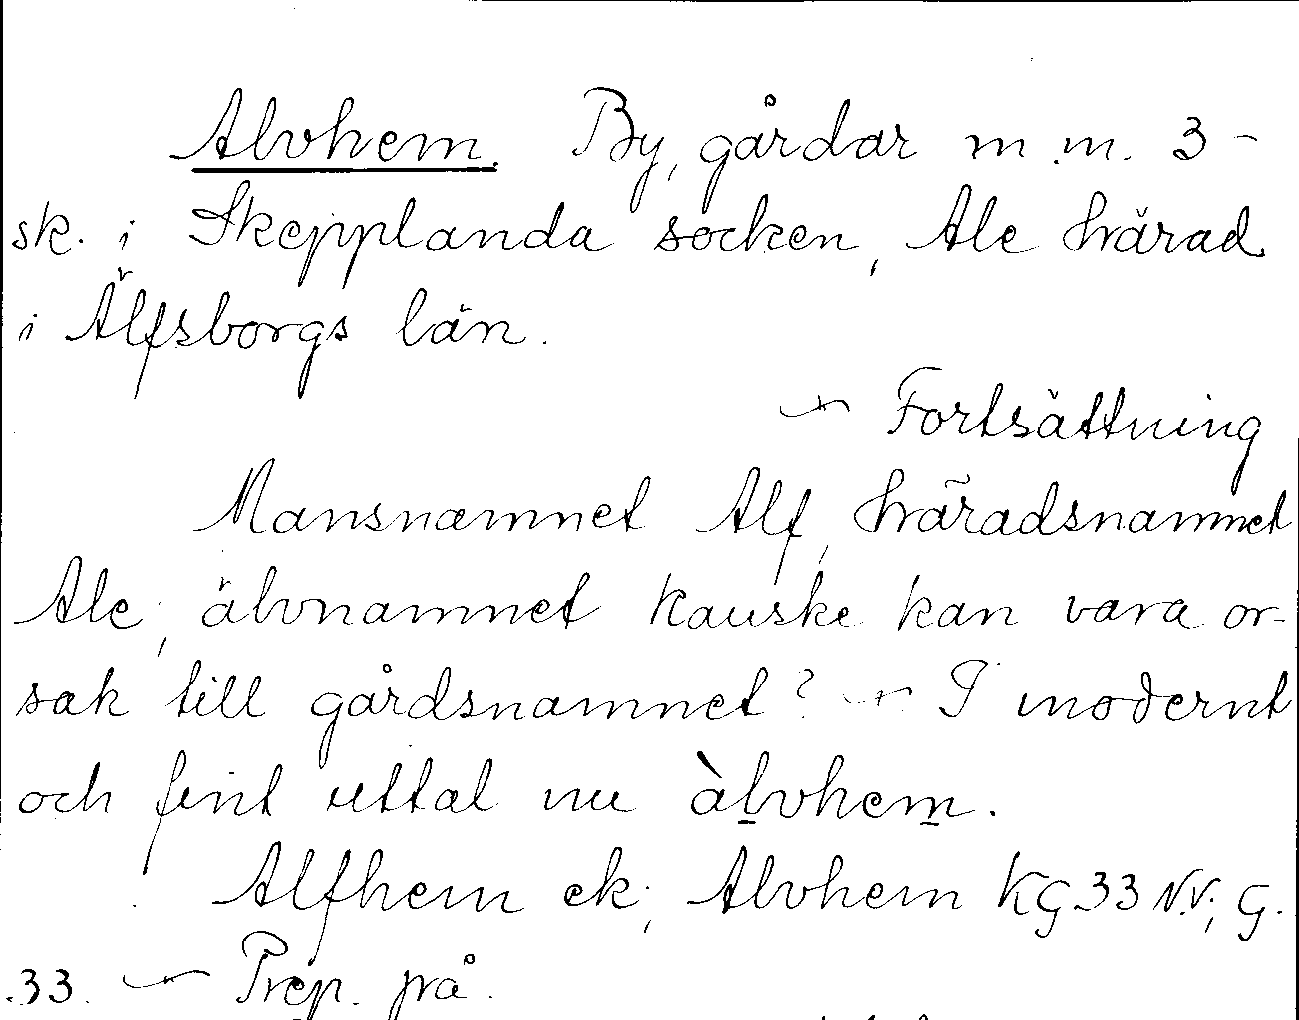 Alvhem. By, gårdar m.m. 3 -
sk. i Skepplanda socken, Ale härad
i Älfsborgs län.
— Fortsättning
Mansnamnet Alf, häradsnamnet
Ale, älvnamnet kanske kan vara or-
sak till gårdsnamnet? — I modernt
och fint uttal nu àlvhem.
Alfhem ek; Alvhem KG 33 N.V; G.
33. — Prep. på.